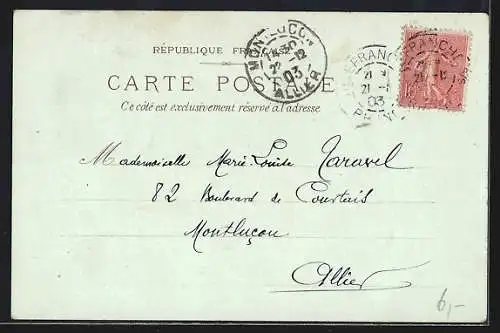 RÉPUBLIQUE FRANÇAISE
CARTE POSTALE
Ce côté est exclusivement réservé à l'adresse
MONTLUÇON
22-12
03
ALLIER
VILLEFRANCHE
21
03
Mademoiselle Marie-Louise Taravel
82 Boulevard de Courtais
Montluçon
Allier
6,-